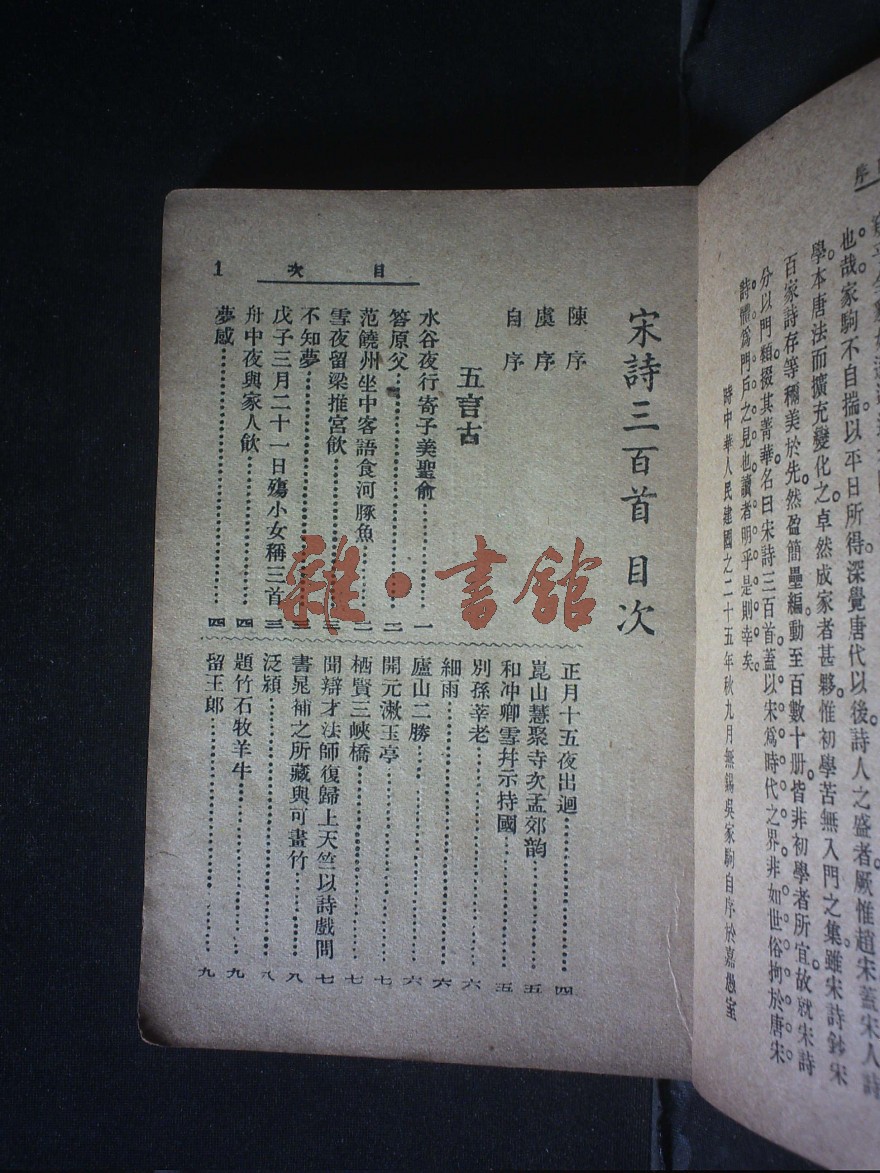 也哉家駒不自揣以平日所得深覺唐代以後詩人之盛者厥惟趙宋蓋宋人詩
學本唐法而擴充變化之卓然成家者甚夥惟初學苦無入門之集雖宋詩鈔宋
百家詩存等稱美於先然盈簡壘編動至百數十册皆非初學者所宜故就宋詩
分以門類掇其菁華名曰宋詩三百首蓋以宋爲時代之界非如世俗拘於唐宋
詩體爲門戶之見也讀者明乎是則幸矣
時中華人民建國之二十五年秋九月無錫吳家駒自序於嘉愚室
目次
1
宋詩三百首 目次
陳序
虞序
自序
五言古
水谷夜行寄子美聖俞 一
答原父 二
范饒州坐中客語食河豚魚 二
雪夜留梁推官飲 三
不知夢 三
戊子三月二十一日殤小女稱三首 三
舟中夜與家人飲 四
夢感 四
正月十五夜出迴 四
崑山慧聚寺次孟郊韵 五
和冲卿雪幷示持國 五
別孫莘老 六
細雨 六
廬山二勝 六
開元漱玉亭 七
栖賢三峽橋 七
聞辯才法師復歸上天竺以詩戲問 七
書晁補之所藏與可畫竹 八
泛潁 八
題竹石牧羊牛 九
留王郎 九
雜·書館